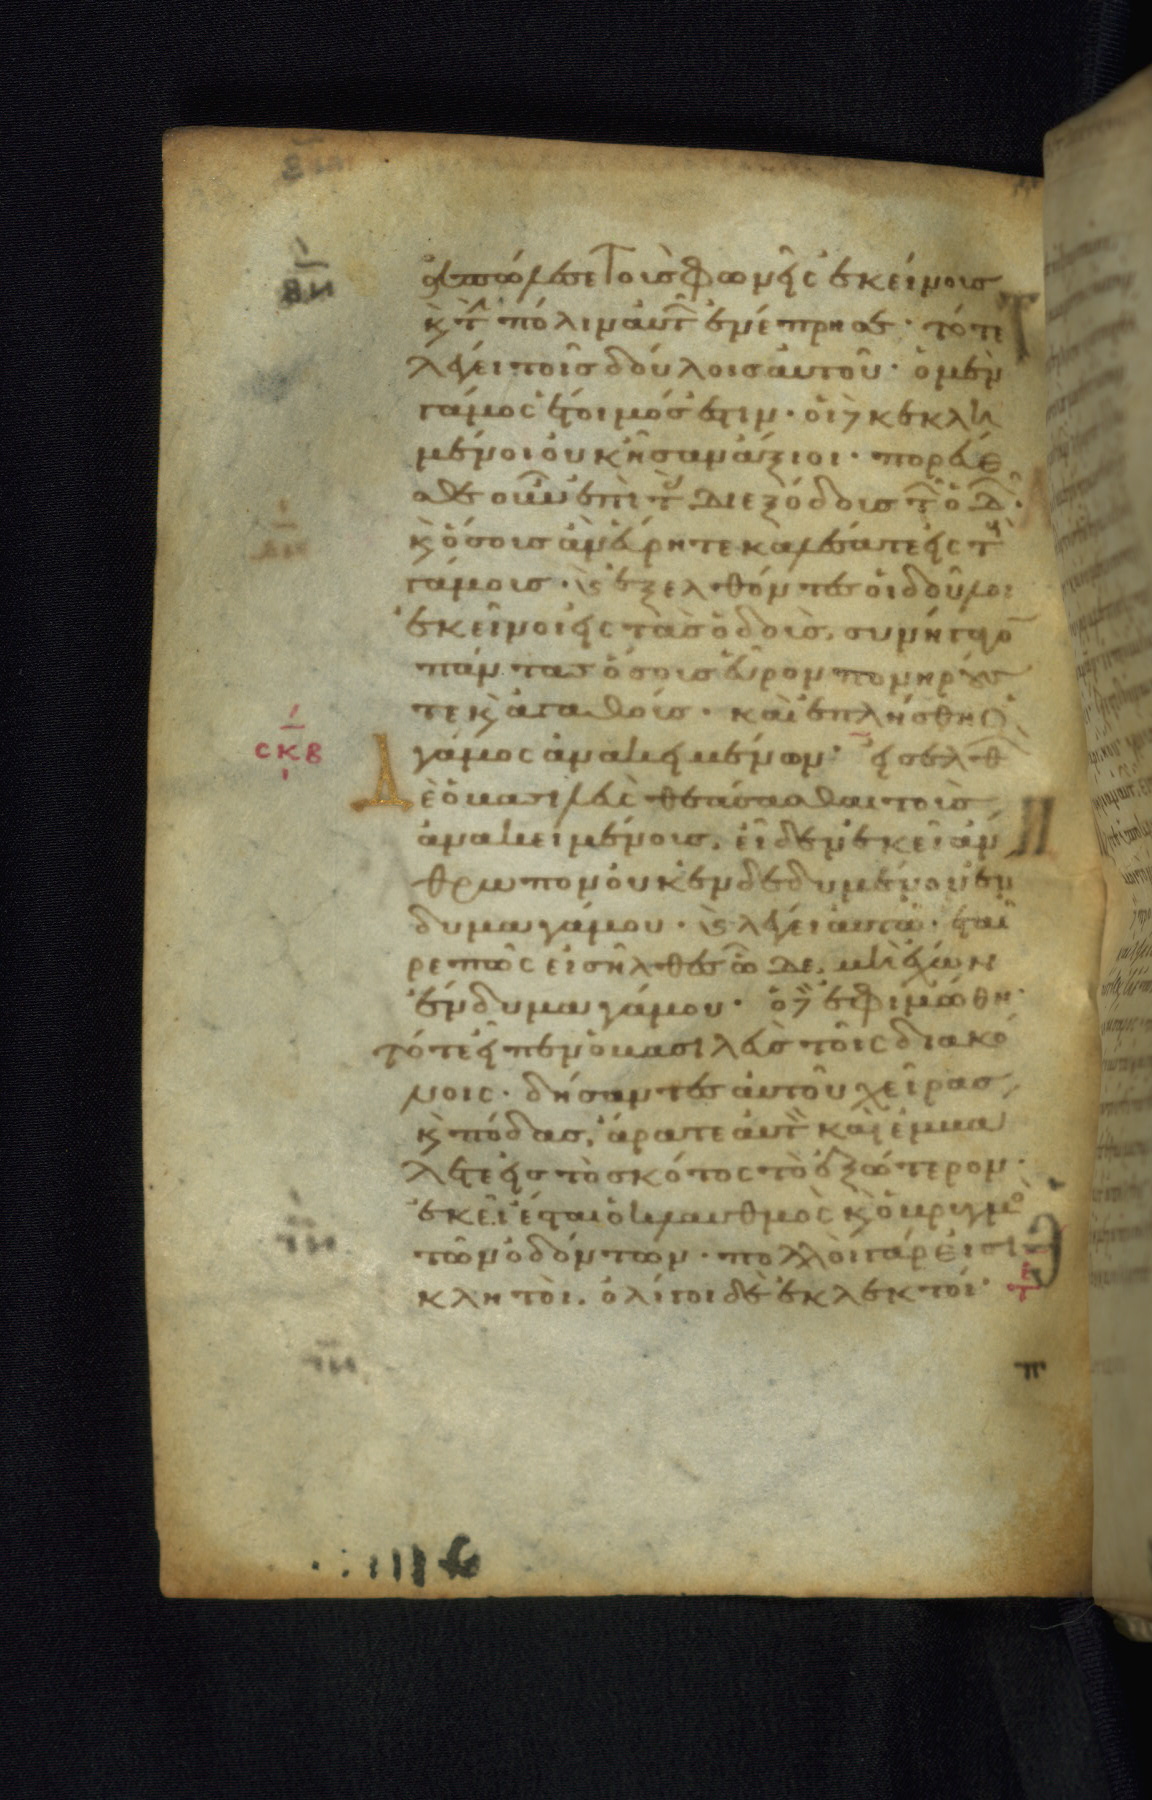 ἀπώλεσε τοὺς φωνεῖς ἐκείνους
κ τ πόλιν αὐτ ἐνέπρησε · τότε
λέγει τοῖς δούλοις αὐτοῦ · ὁ μὲν
γάμος ἕτοιμός ἐστιν · οἱ δ κεκλη
μένοι οὐκ ἦσαν ἄξιοι · πορεύε
σθε οὖν ἐπὶ τ διεξόδους τ ὁδ ·
κ ὅσους ἂν εὕρητε καλέσατε εἰς τ
γάμους · κ ἐξελθόντες οἱ δοῦλοι
ἐκεῖνοι εἰς τὰς ὁδοὺς, συνήγαγο
πάντας ὅσους εὗρον πονηρούς
τε κ ἀγαθούς · καὶ ἐπλήσθη ὁ
γάμος ἀνακειμένων · εἰσελθ
Δ
ὲ ὁ βασιλεὺς θεάσασθαι τοὺς
ἀνακειμένους, εἶδεν ἐκεῖ ἄν
θρωπον οὐκ ἐνδεδυμένον ἐν
δυμα γάμου · κ λέγει αὐτῶ · ἑταῖ
ρε πῶς εἰσῆλθες ὧδε, μὴ ἔχων
ἔνδυμα γάμου · ὁ δ ἐφιμώθη ·
τότε εἶπεν ὁ βασιλεὺς τοῖς διακό
νοις · δήσαντες αὐτοῦ χεῖρας
κ πόδας, ἄρατε αὐτ καὶ ἐμβα
λετε εἰς τὸ σκότος τὸ ἐξώτερον ·
ἐκεῖ ἔσται ὁ κλαυθμὸς κ ὁ βρυγμὸ
τῶν ὀδόντων · πολλοὶ γάρ εἰσι
κλητοὶ, ὀλίγοι δὲ ἐκλεκτοί ·
σκβ